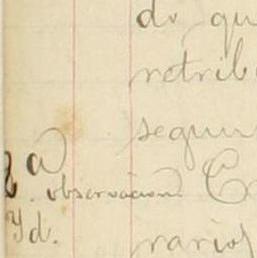 do qu
retrib
segun
a
observacion C
Yd.
varios